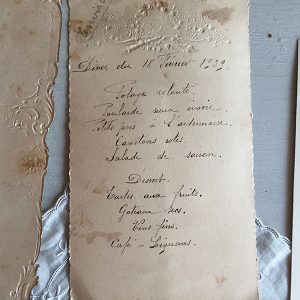 Dîner du 18 Février 1939.
Potage velouté.
Poularde sauce ivoire.
Petits pois à l'ardennaise.
Canetons rôtis.
Salade de saison.
Dessert.
Tartes aux fruits.
Gateaux secs.
Vins fins.
Café - Liqueurs.